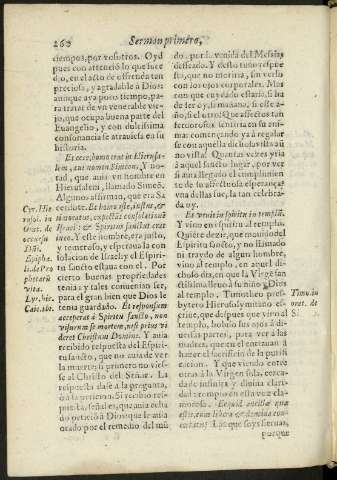 260 Sermon primero,
tiempos, por vosotros. Oyd
pues con atenció lo que suce
dio, en el acto de ofrenda tan
preciosa, y agradable à Dios:
aunque aya poco tiempo, pa-
ra tratar de vn viejo venerable,
que ocupa buena parte del
Euangelio, y con dulcissima
consonancia se atrauiesa en su
historia.
Et ecce, homo erat in Hierusa-
lem, cui nomen Simeon. Y no-
tad, que auia vn hombre en
Hierusalem, llamado Simeõ.
Algunos afirman, que era Sa
cerdote. Et homo iste, iustus, &
timoratus, expectãs consolationẽ
Israel: & Spiritus sanctus erat
in eo. Y este hombre, era justo,
y temeroso, y esperaua la con
solacion de Israel: y el Espiri-
tu sancto estaua con el. Por
cierto buenas propriedades
tenia, y tales conuenian ser,
para el gran bien que Dios le
tenia guardado. Et responsum
acceperat à Spiritu sancto, non
visurum se mortem, nisi prius vi
deret Christum Domini. Y auia
recibido respuesta del Espiri-
tu sancto, que no auia de ver
la muerte, si primero no vies-
se al Christo del Señor. La
respuesta dase à la pregunta,
ò à la peticion. Si recibio res-
puesta, señal es, que auia echa
do peticiõ à Dios: que se auia
orado por el remedio del mũ
Cyr. Hie
rosol. in
Orat. de
occursu
Dñi.
Epipha.
li. de Pro
phetarũ
vita.
Lyr. hic.
Caie. ibi.
do: por la venida del Messias
desseado. Y desto tuuo respue
sta, que no moriria, sin verlo
con los ojos corporales. Mas
con que cuydado estaria, si ha
de ser oy, si mañana, si este a-
ño, si el otro? Que affectos tan
feruorosos sentiria en su ani-
ma: començando ya à regalar
se con aquella dichosa vista aũ
no vista! Quantas vezes yria
à aquel sancto lugar, por ver
si aua llegado el complimien
to de su affectuosa esperança:
vna dellas fue, la tan celebra-
da oy.
Et venit in spiritu in templũ.
Y vino en Spiritu al templo.
Quiere dezir, que mouido del
Espiritu sancto, y no llamado
ni traydo de algun hombre,
vino al templo, en aquel di-
choso dia, en que la Virgẽ san
ctissima lleuò à su hijo y Dios
al templo. Timotheo pres-
bytero Hierosolymitano es-
criue, que despues que vino al
templo, boluio los ojos à di-
uersas partes, para ver las
madres, que entrauan à
hazer el sacrificio de la purifi
cacion. Y que viendo entre
otras à la Virgen sola, cerca-
da de infinita y diuina clari-
dad: rompio en esta voz cla-
morosa. Ecquid ancillæ quæ
estis, cum libera & domina con-
tenditis? Las que soys sieruas,
porque
Timo. in
orat. de
Si.